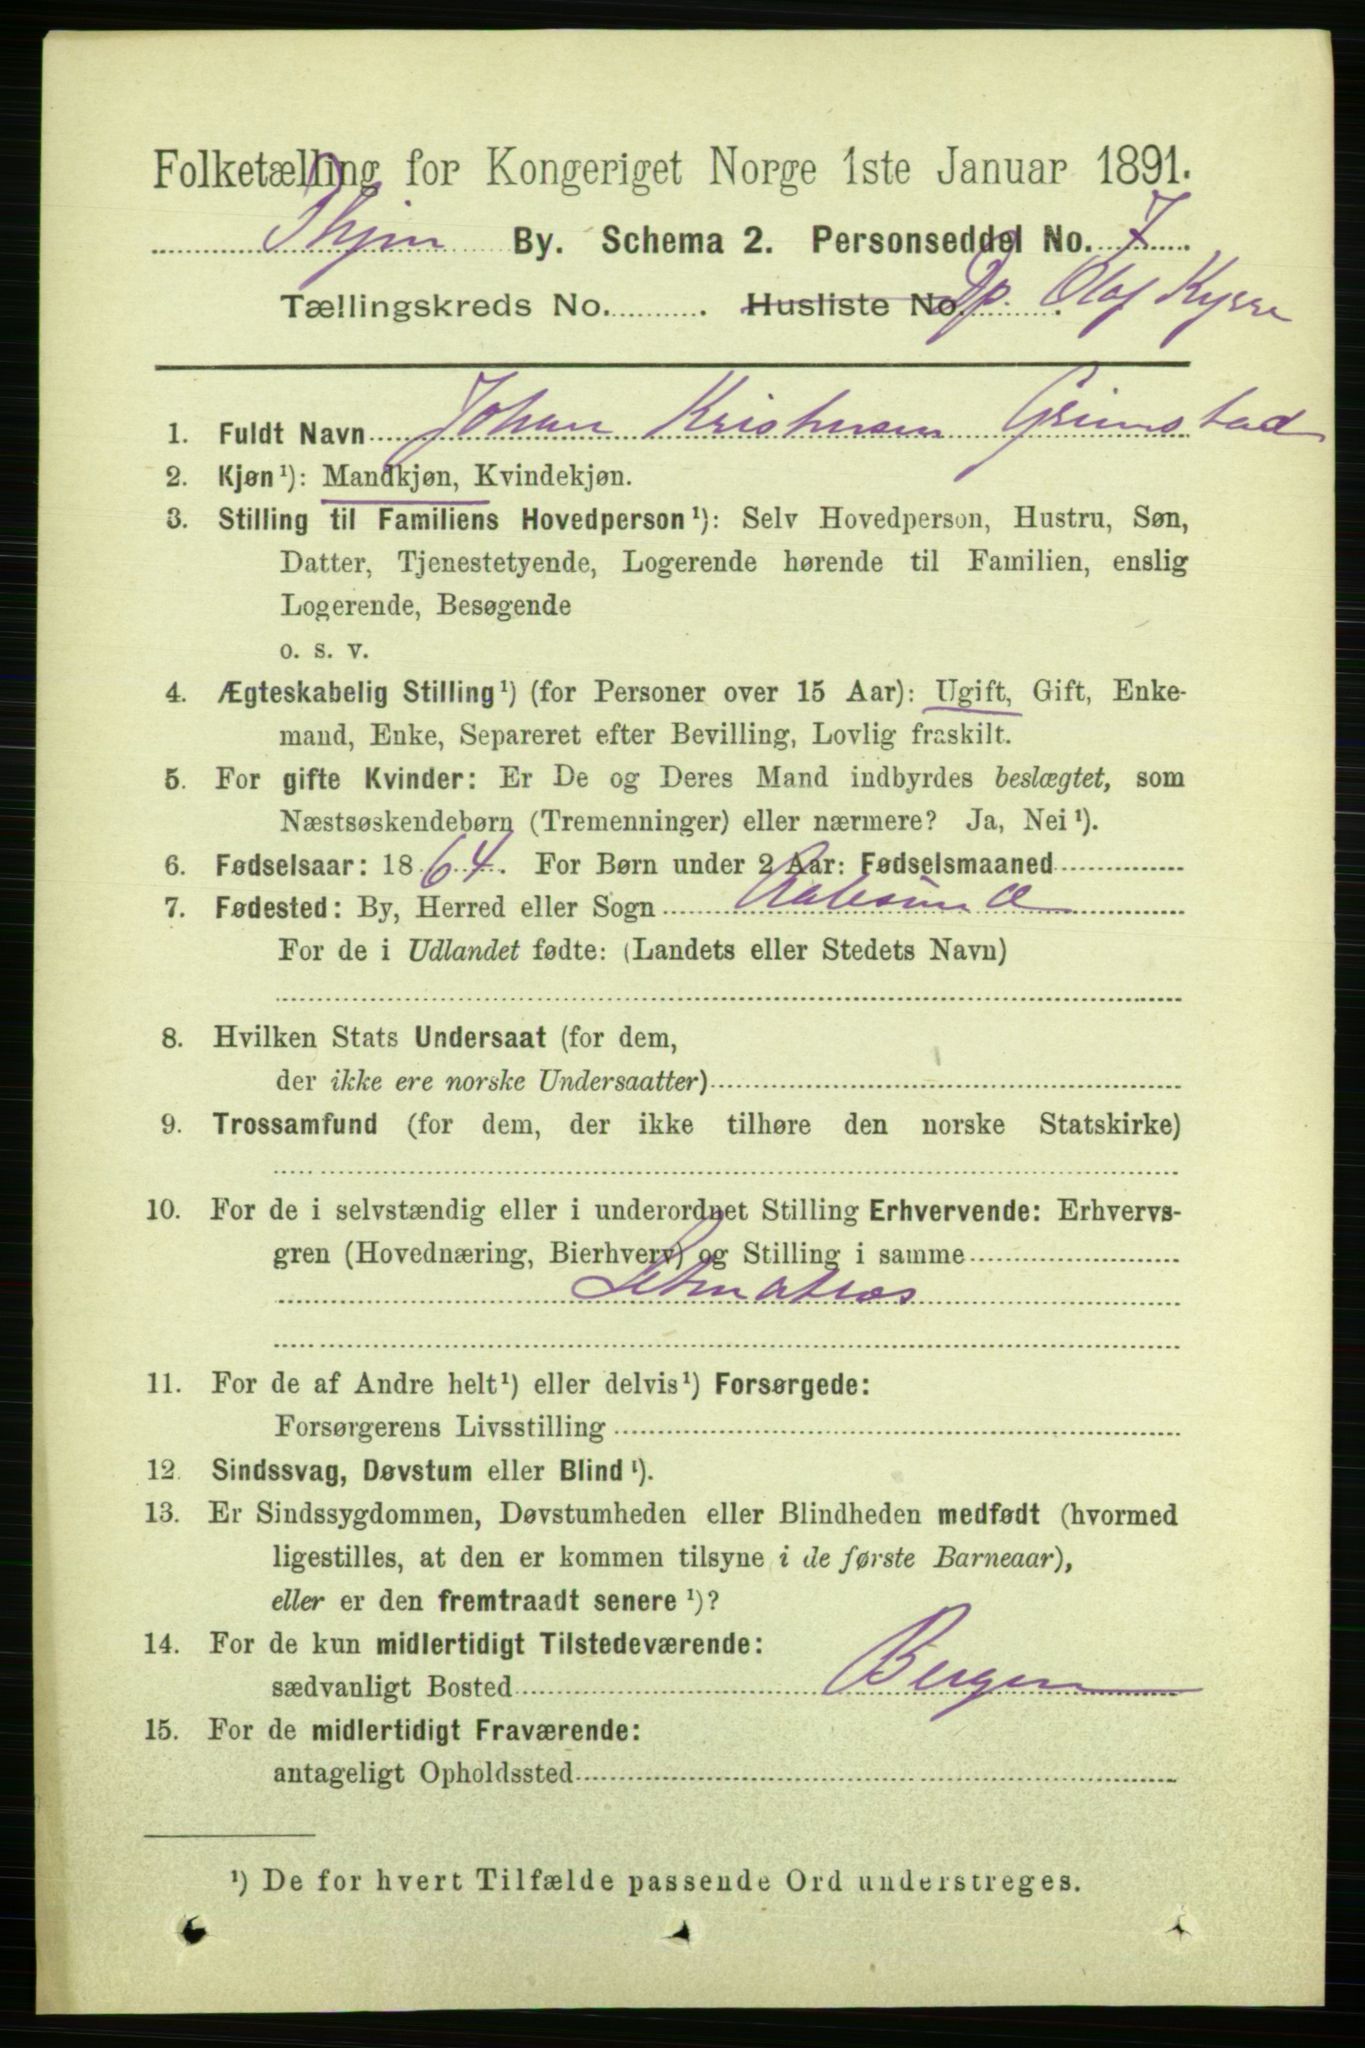 Folketælling for Kongeriget Norge 1ste Januar 1891.
Thjm By. Schema 2. Personseddel No. 7
Tællingskreds No. . Husliste No. Dp. Olaf Kyrre
1. Fuldt Navn Johan Kristensen Grimstad
2. Kjøn¹): Mandkjøn, Kvindekjøn.
3. Stilling til Familiens Hovedperson¹): Selv Hovedperson, Hustru, Søn,
Datter, Tjenestetyende, Logerende hørende til Familien, enslig
Logerende, Besøgende
o. s. v.
4. Ægteskabelig Stilling¹) (for Personer over 15 Aar): Ugift, Gift, Enke-
mand, Enke, Separeret efter Bevilling, Lovlig fraskilt.
5. For gifte Kvinder: Er De og Deres Mand indbyrdes beslægtet, som
Næstsøskendebørn (Tremenninger) eller nærmere? Ja, Nei¹).
6. Fødselsaar: 1864. For Børn under 2 Aar: Fødselsmaaned
7. Fødested: By, Herred eller Sogn Aalesund
For de i Udlandet fødte: (Landets eller Stedets Navn)
8. Hvilken Stats Undersaat (for dem,
der ikke ere norske Undersaatter)
9. Trossamfund (for dem, der ikke tilhøre den norske Statskirke)
10. For de i selvstændig eller i underordnet Stilling Erhvervende: Erhvervs-
gren (Hovednæring, Bierhverv) og Stilling i samme
Letmatros
11. For de af Andre helt¹) eller delvis¹) Forsørgede:
Forsørgerens Livsstilling
12. Sindssvag, Døvstum eller Blind¹).
13. Er Sindssygdommen, Døvstumheden eller Blindheden medfødt (hvormed
ligestilles, at den er kommen tilsyne i de første Barneaar),
eller er den fremtraadt senere¹)?
14. For de kun midlertidigt Tilstedeværende:
sædvanligt Bosted Bergen
15. For de midlertidigt Fraværende:
antageligt Opholdssted
¹) De for hvert Tilfælde passende Ord understreges.